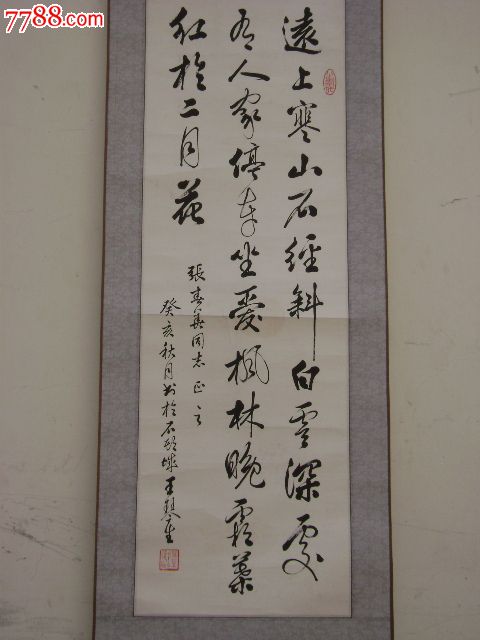 7788.com
遠上寒山石經斜白雲深處
有人家停车坐愛楓林晚霜葉
红於二月花
張春同志正之
癸亥秋月书於石城王